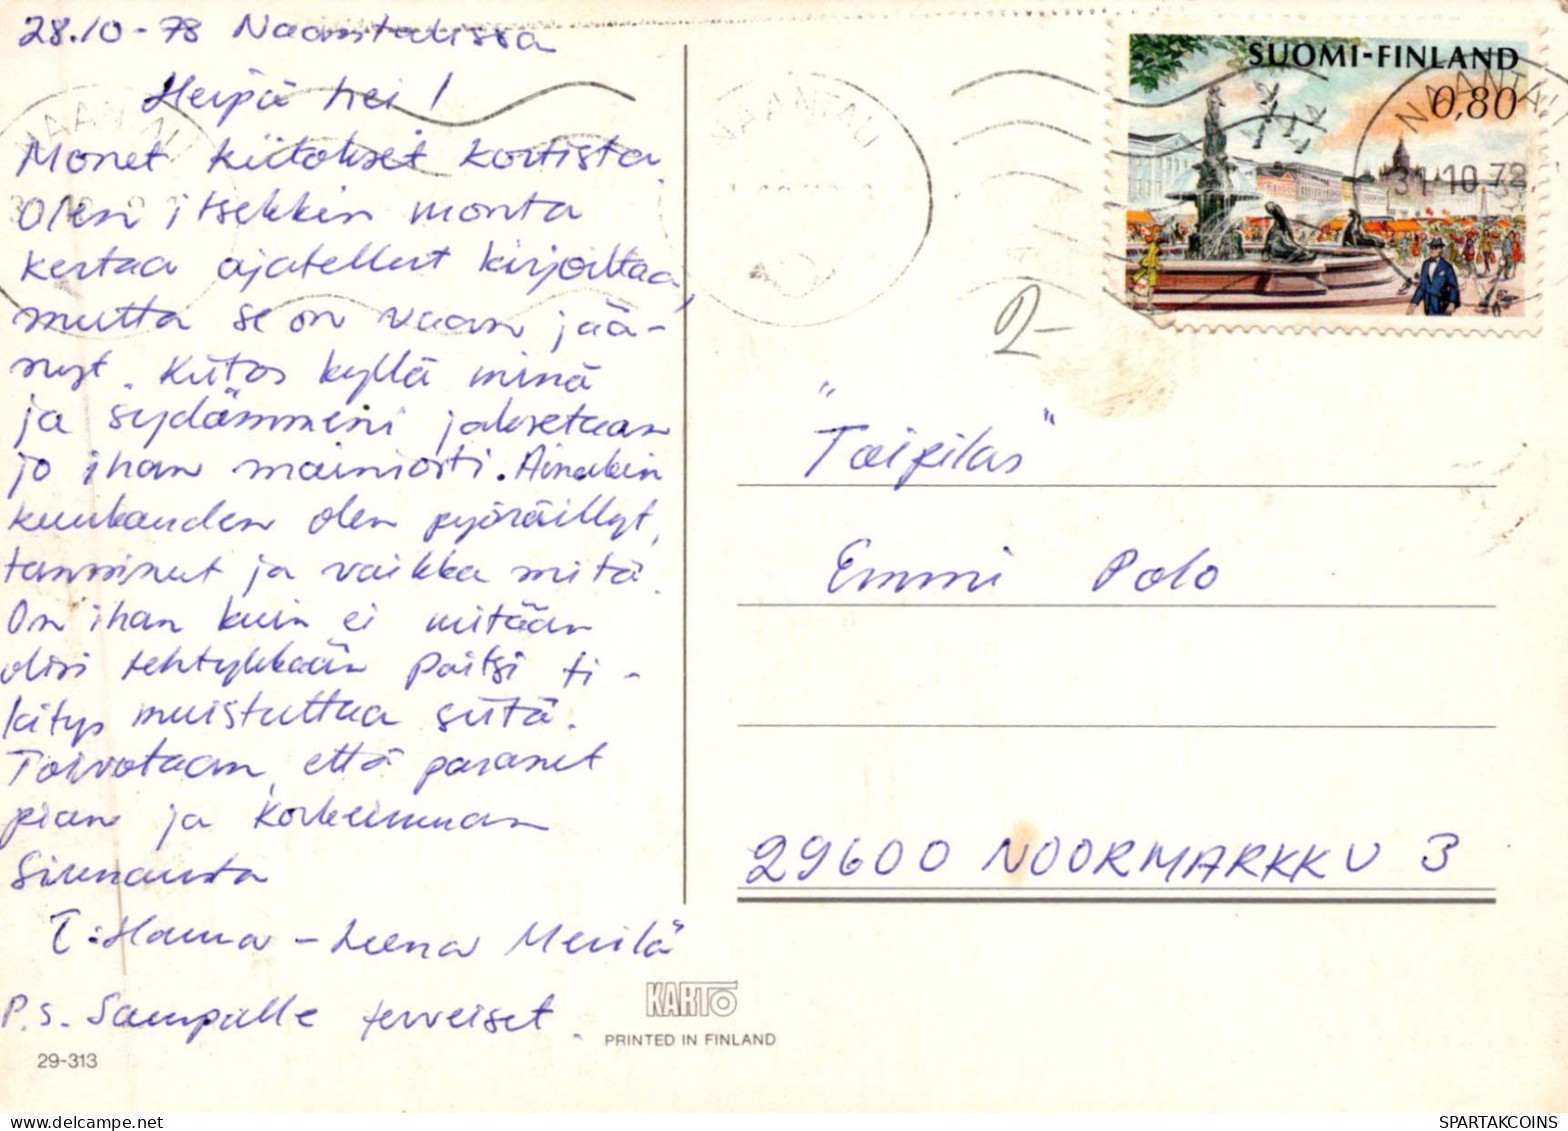 28.10-78 Naantalissa
Heipä hei!
Monet kiitokset kortista.
Olen itsekkin monta
kertaa ajatellut kirjoittaa,
mutta se on vaan jää-
nyt. Kiitos kyllä minä
ja sydämmeni jaksetaan
jo ihan mainiosti. Ainakin
kuukauden olen pyöräillyt,
tanssinut ja vaikka mitä.
On ihan kuin ei mitään
olisi tehtykkään paitsi ti-
kitys muistuttaa siitä.
Toivotaan, että paranet
pian ja Korkeimman
Siunausta
T:Hanna-Leena Merilä
P.S. Sampalle terveiset.
29-313
KARTO
PRINTED IN FINLAND
SUOMI-FINLAND
0,80
NAANTALI
31.10.78
NAANTALI
NAANTALI
2-
"Taipilas"
Emmi Polo
29600 NOORMARKKU 3
SPARTAKCOINS